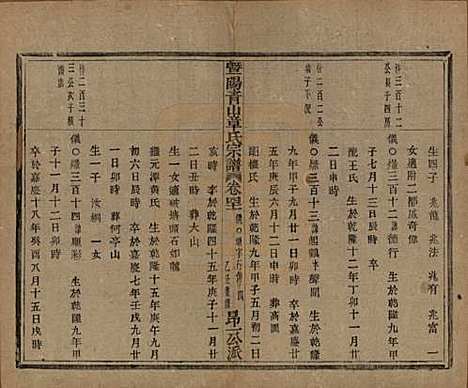 仕三百十二
公長子四房
生四子 兆龍 兆法 兆有 兆富 一
女適附二都馮奇偉
儀〇第三百十二諱德行 生於乾隆九年甲
子七月十三日時 卒
配王氏 生於乾隆二十二年丁丑十一月十
二日申時
仕二百二公
長子下院
儀〇第三百十三諱
九年甲子九月廿一日寅時 卒於嘉慶十
五年庚辰六月十二日申時 葬高園
配樓氏 生於乾隆九年甲子五月初二日
暨陽青山章氏宗譜 卷
昂一公派
亥時 卒於乾隆四十五年庚子十一月
二日丑時 葬大山
生一女適坡塘頭石如蘭
繼元潭黃氏 生於乾隆十五年庚午九月
初六日辰時 卒於嘉慶七年壬戌九月廿
一日卯時 葬何亭山
生一子 汝桐 一女
仕二百三十
三公次子
儀〇第三百十四諱 生於乾隆九年甲
子十一月十二日卯時
卒於嘉慶十八年癸酉八月十五日戌時